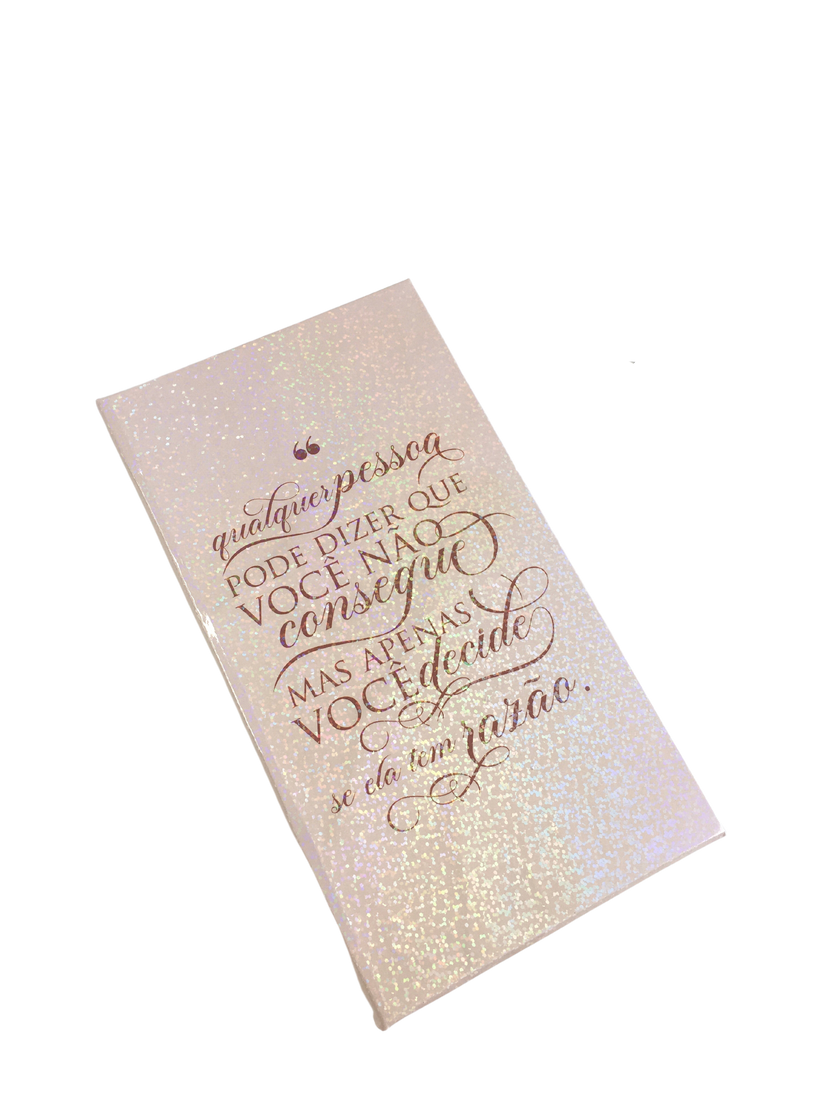 “
qualquer pessoa
PODE DIZER QUE
VOCÊ NÃO
consegue
MAS APENAS
VOCÊ decide
se ela tem razão.